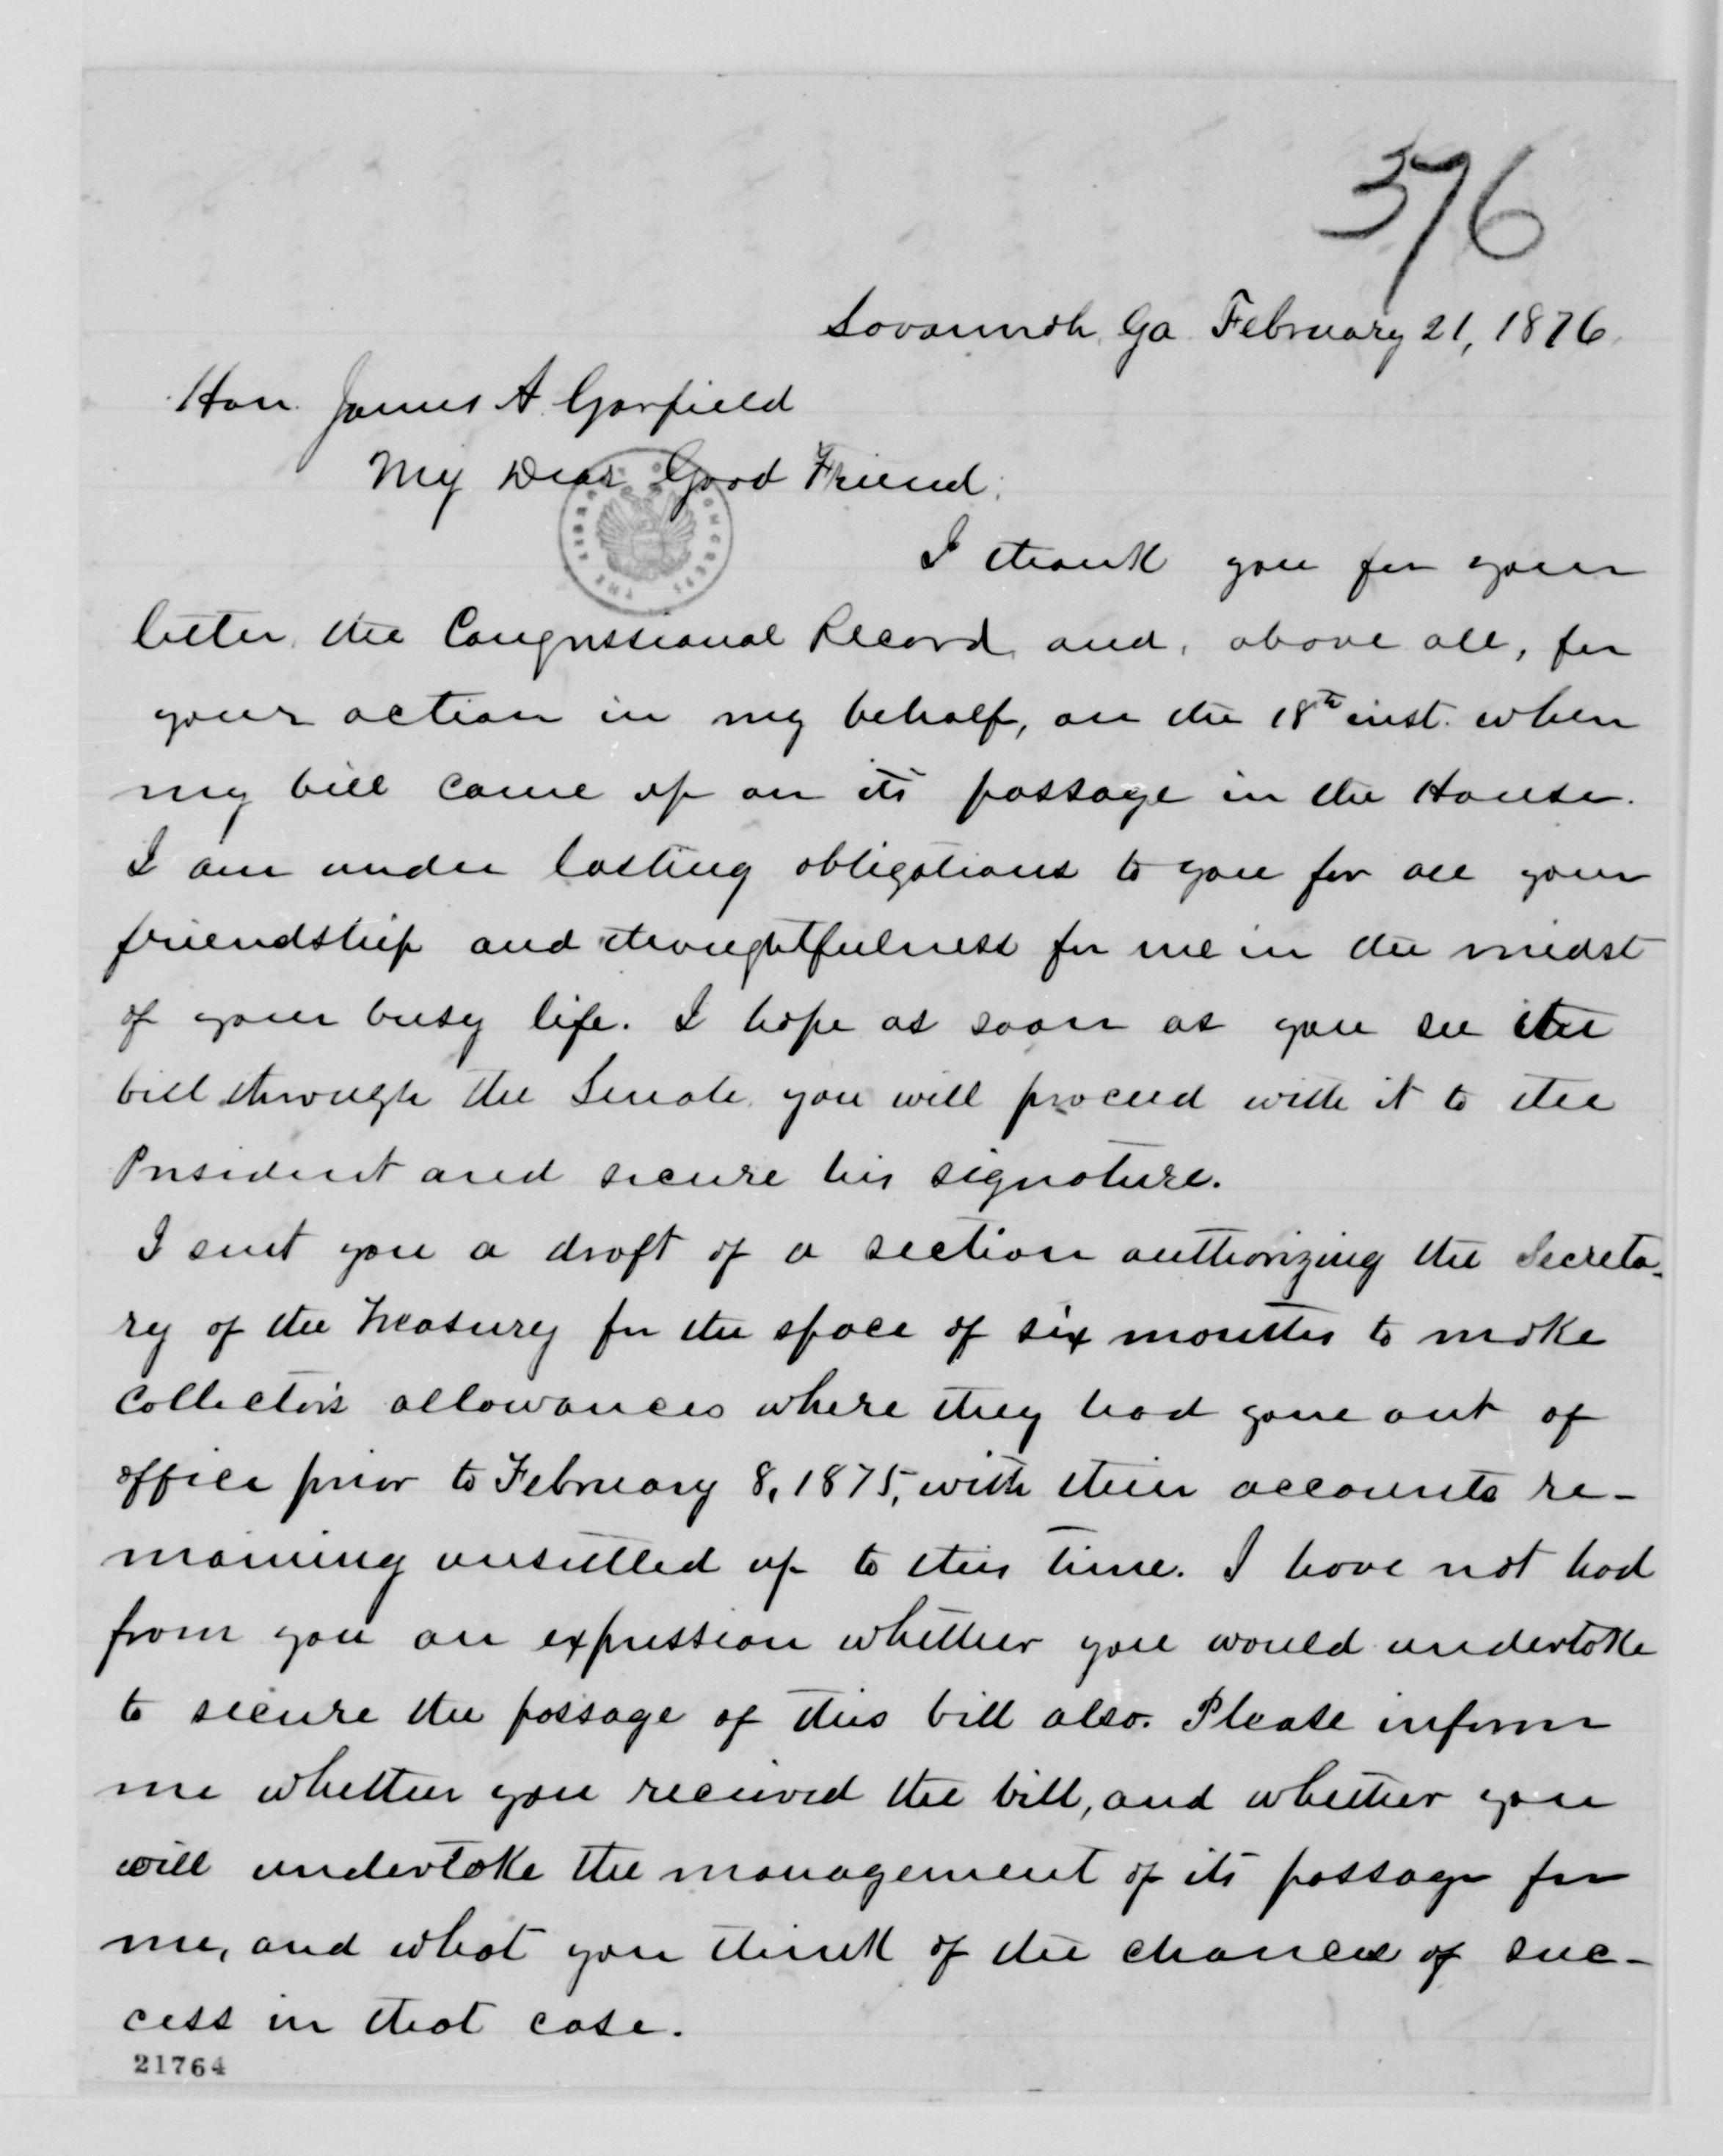 376
Savannah, Ga. February 21, 1876.
Hon. James A. Garfield
My Dear Good Friend:
I thank you for your
letter, the Congressional Record, and, above all, for
your action in my behalf, on the 18th inst. when
my bill came up on its passage in the House.
I am under lasting obligations to you for all your
friendship and thoughtfulness for me in the midst
of your busy life. I hope as soon as you see the
bill through the Senate, you will proceed with it to the
President and secure his signature.
I sent you a draft of a section authorizing the Secreta-
ry of the Treasury for the space of six months to make
collectors allowances where they had gone out of
office prior to February 8, 1875, with their accounts re-
maining unsettled up to this time. I have not had
from you an expression whether you would undertake
to secure the passage of this bill also. Please inform
me whether you received the bill, and whether you
will undertake the management of its passage for
me, and what you think of the chances of suc-
cess in that case.
21764